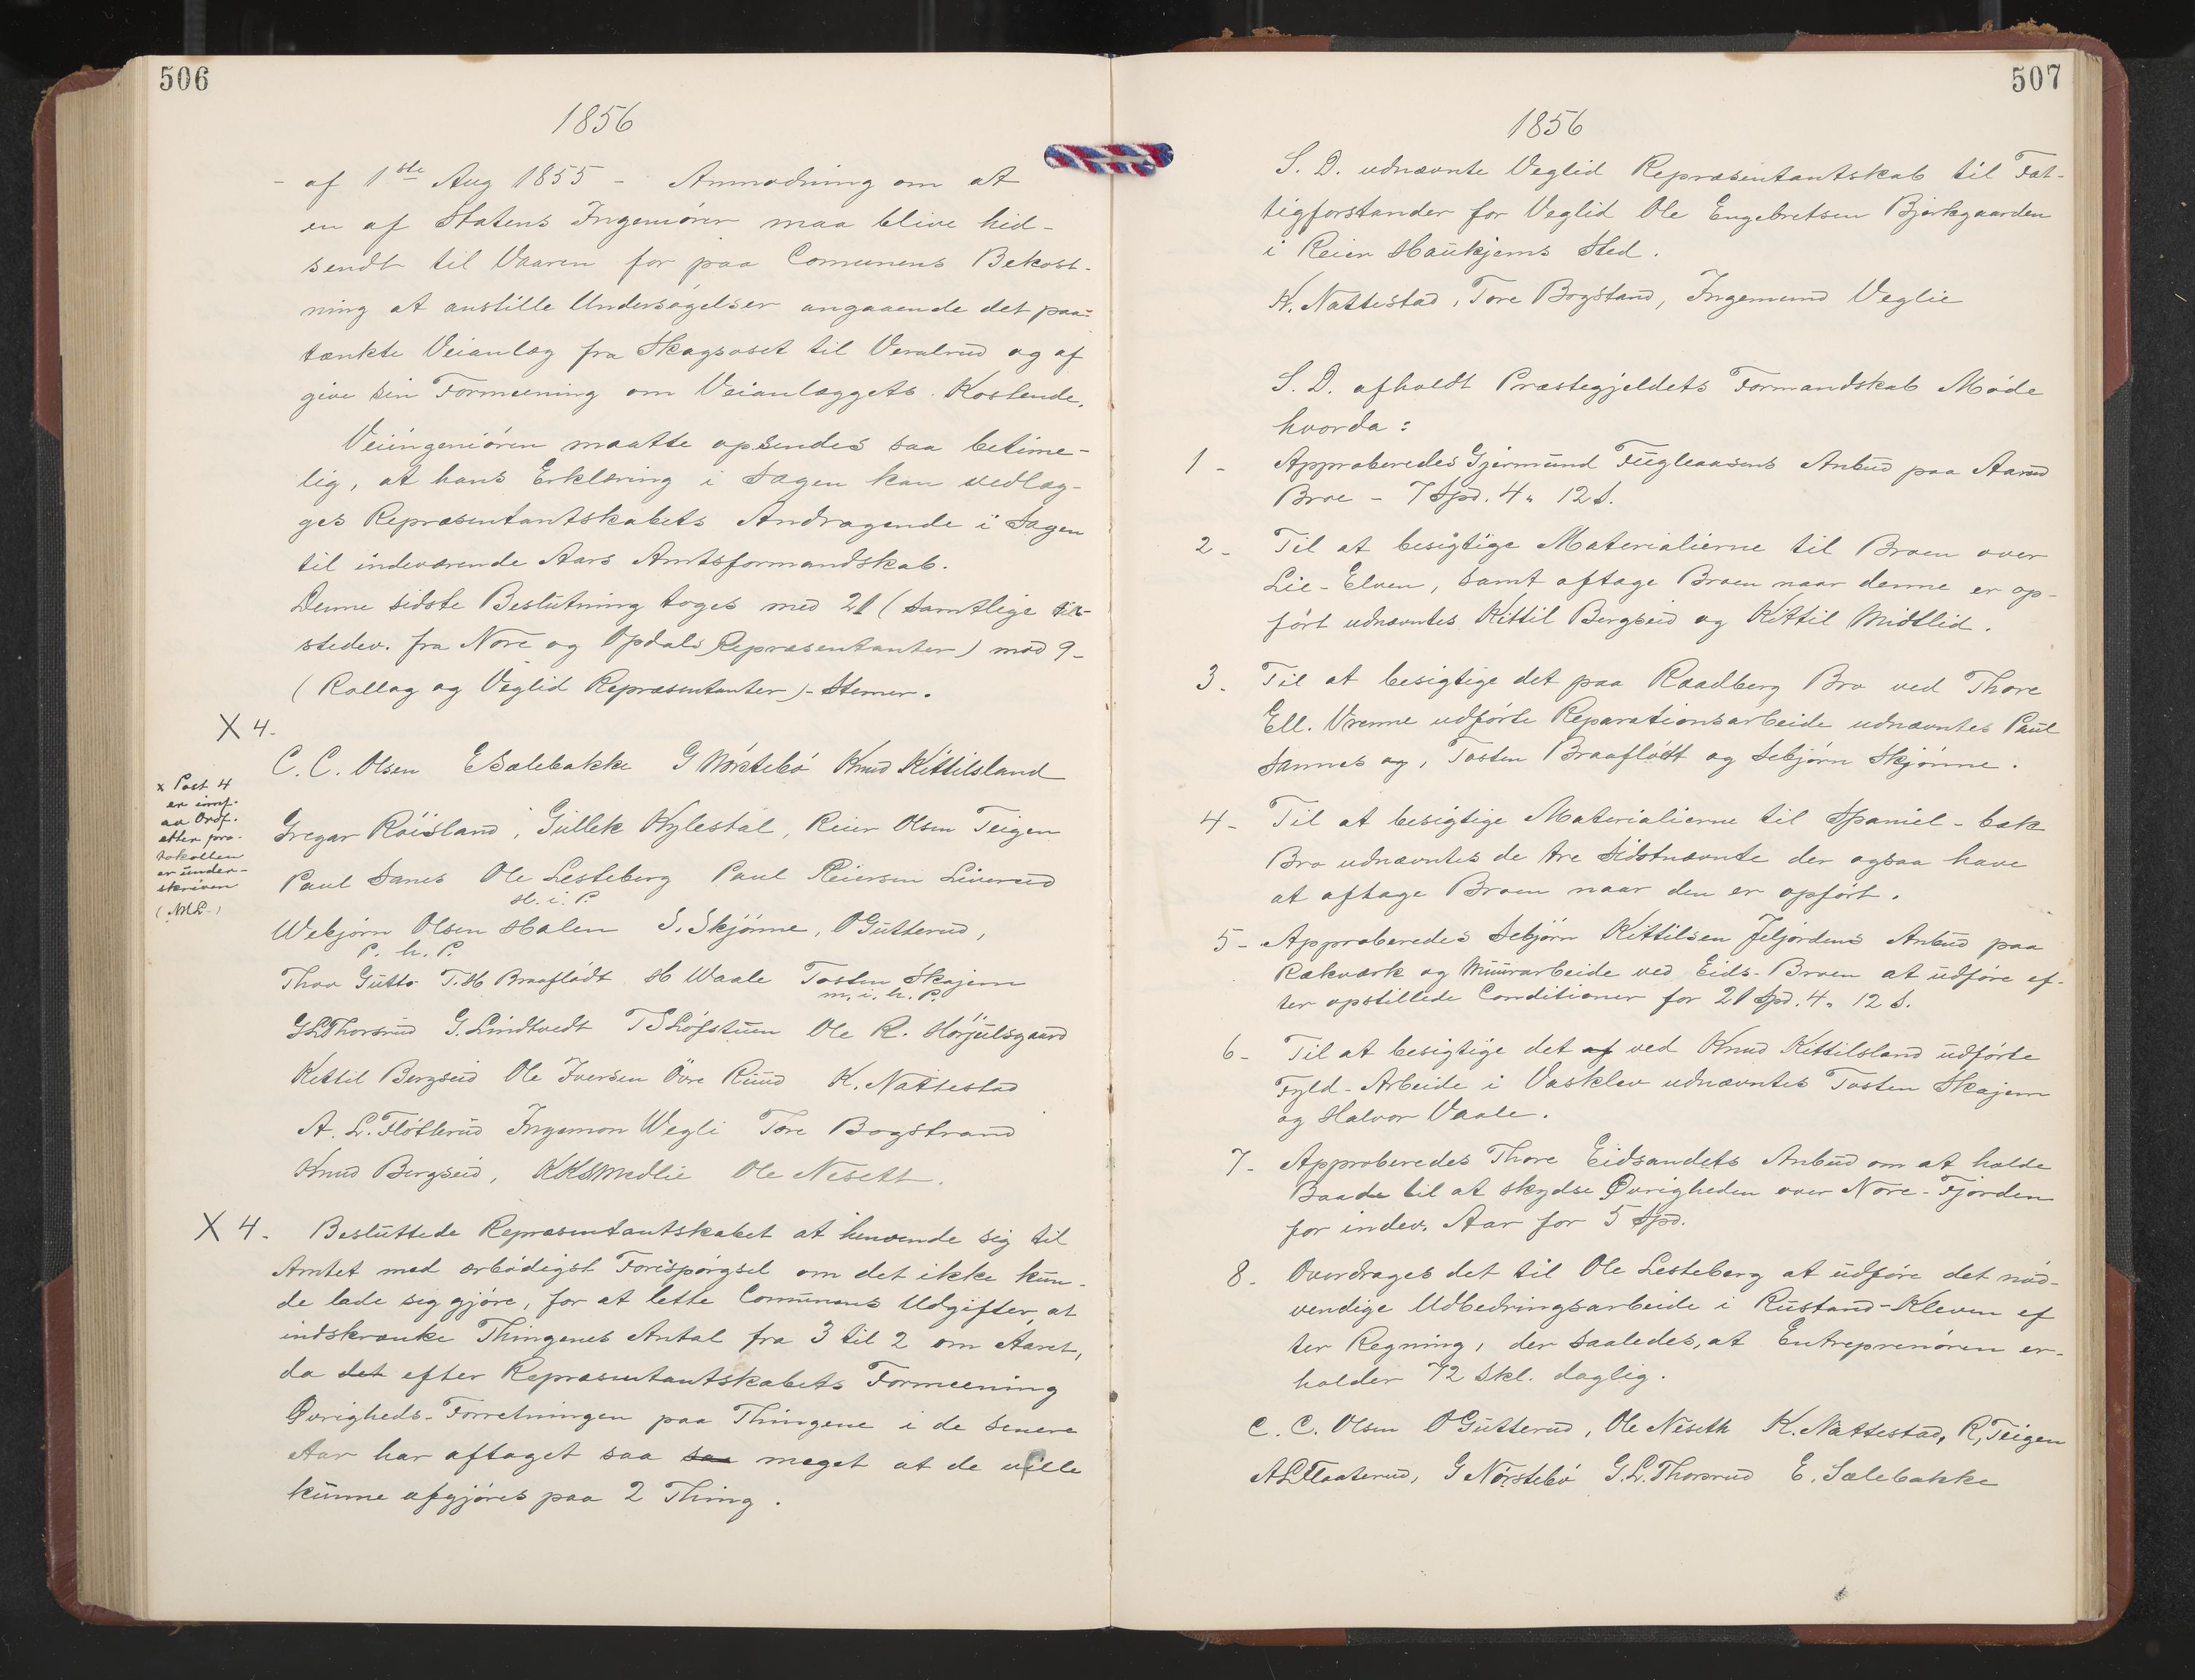 506
1856
- af 1ste Aug 1855 - Anmodning om at
en af Statens Ingeniörer maa blive hid-
sendt til Vaaren for paa Comunens Bekost-
ning at anstille Undersögelser angaaende det paa-
tænkte Veianlæg fra Skagsoset til Veralrud og af
give sin Formeening om Veianlæggets Kostende.
Veiingeniören maatte opsendes saa betime-
lig, at hans Erklæring i Sagen kan vedlæg-
ges Repræsentantskabets Andragende i Sagen
til indeværende Aars Amtsformandskab.
Denne sidste Beslutning toges med 21 (samtlige til-
stedev. fra Nore og Opdals Repræsentanter) mod 9-
(Rollag og Veglid Repræsentanter)- Stemer.
X 4.
C. C. Olsen ESælebakke G Nörstebö Knud Kittilsland
x Post 4
er innf.
av Ordf.
etter pro-
tokollen
er under-
skriven
(ML)
Gregar Röisland, Gullek Kylestal, Reier Olsen Teigen
Paul Sanes Ole Lesteberg Paul Reiersen Liverud
H. i. P.
Webjörn Olsen Halen S. Skjönne, OGutterud,
P. h. P.
Thov Gutto T.H Braaflödt H Waale Tosten Skajem
m. i. h. P.
GLThorsrud G. Lindtvedt TSLöfstuen Ole R. Hörjulsgaard
Kettil Bergseid Ole Iversen Övre Ruud K. Nattestad
A. L. Flötterud Ingemon Wegli Tore Bogstrand
Knud Bergseid, KKSmedlie Ole Nesett.
X 4. Besluttede Repræsentantskabet at henvende sig til
Amtet med ærbödigst Forespörgsel om det ikke kun-
de lade sig gjöre, for at lette Comunens Udgifter, at
indskrænke Thingenes Antal fra 3 til 2 om Aaret,
da det efter Repræsentantskabets Formeening
Øvrigheds-Forretningen paa Thingene i de senere
Aar har aftaget saa saa meget at de ville
kunne afgjöres paa 2 Thing.
507
1856
S. D. udnævnte Veglid Repræsentantskab til Fat-
tigforstander for Veglid Ole Engebretsen Bjerkgaarden
i Reier Haukjems Sted.
K. Nattestad, Tore Bogstand, Ingemund Veglie
S. D. afholdt Præstegjeldets Formandskab Möde
hvorda:
1 - Approberedes Gjermund Fugleaasens Anbud paa Aarud
Broe - 7 Spd. 4" 12 s.
2 - Til at besigtige Materialierne til Broen over
Lie-Elven, samt aftage Broen naar denne er op-
fört udnævntes Kittil Bergseid og Kittil Midtlid.
3. Til at besigtige det paa Raadberg Bro ved Thore
Ell. Vrenne udförte Reparationsarbeide udnævntes Paul
Sannes og, Tosten Braaflödt og Sebjörn Skjönne.
4- Til at besigtige Materialierne til Spaniel-bæk
Bro udnævntes de tre Sidstnævnte der ogsaa have
at aftage Broen naar den er opfört.
5- Approberedes Sebjörn Kittilsen Jeljordens Anbud paa
Rækværk og Muurarbeide ved Eids-Broen at udföre ef-
ter opstillede Conditioner for 21 Spd. 4" 12 s.
6- Til at besigtige det af ved Knud Kittilsland udförte
Fyld-Arbeide i Vasklev udnævntes Tosten Skajem
og Halvor Vaale.
7- Approberedes Thore Eidsandets Anbud om at holde
Baade til at skydse Øvrigheden over Nore-Fjorden
for indev. Aar for 5 Spd.
8- Overdrages det til Ole Lesteberg at udföre det nöd-
vendige Udbedringsarbeide i Rustand-Kleven ef
ter Regning, der saaledes, at Entreprenören er-
holder 72 Skl. daglig.
C. C. Olsen OGutterud, Ole Neseth K. Nattestad, R, Teigen
ALFlaaterud, G Nörstebö G. L. Thorsrud E. Sælebakke